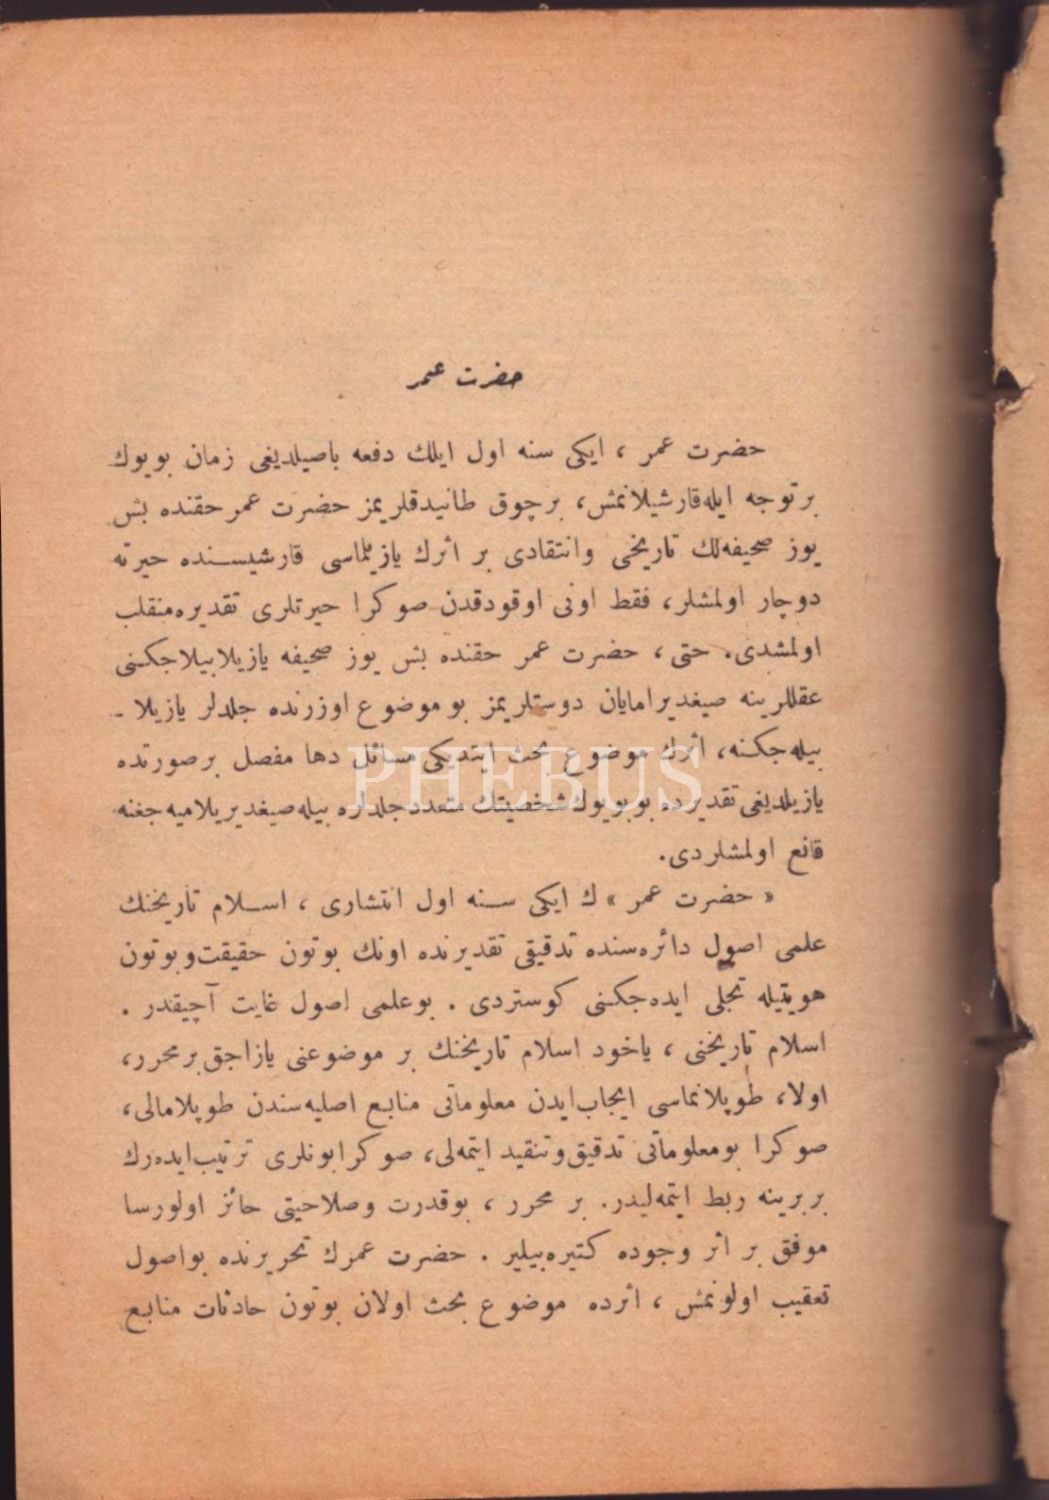 حضرت عمر
حضرت عمر ، ايكى سنه اول ايلك دفعه باصيلديغى زمان بويوك
بر توجه ايله قارشيلانمش، بر چوق طانيدقلريمز حضرت عمر حقنده بش
يوز صحيفه‌لك تاريخى وانتقادى بر اثرك يازيلماسى قارشيسنده حيرته
دوچار اولمشلر، فقط اونى اوقودقدن صوكرا حيرتلرى تقديره منقلب
اولمشدى. حتى ، حضرت عمر حقنده بش يوز صحيفه يازيلابيلاجكنى
عقللرينه صيغديرامايان دوستلريمز بو موضوع اوزرنده جلدلر يازيلا -
بيله‌جكنه، اثرك موضوع بحث ايتديكى مسائل دها مفصل بر صورتده
يازيلديغى تقديرده بو بويوك شخصيتك متعدد جلدلره بيله صيغديريلاميه‌جغنه
قانع اولمشلردى.
« حضرت عمر » ك ايكى سنه اول انتشارى ، اسلام تاريخنك
علمى اصول دائره‌سنده تدقيقى تقديرنده اونك بوتون حقيقت و بوتون
هويتيله تجلى ايده‌جكنى كوستردى . بو علمى اصول غايت آچيقدر .
اسلام تاريخنى ، ياخود اسلام تاريخنك بر موضوعنى يازاجق بر محرر،
اولا، طوپلانماسى ايجاب ايدن معلوماتى منابع اصليه‌سندن طوپلامالى،
صوكرا بو معلوماتى تدقيق و تنقيد ايتمه‌لى، صوكرا بونلرى ترتيب ايده‌رك
بربرينه ربط ايتمه‌ليدر. بر محرر ، بو قدرت وصلاحيتى حائز اولورسا
موفق بر اثر وجوده كتيره‌بيلير . حضرت عمرك تحريرنده بو اصول
تعقيب اولونمش ، اثرده موضوع بحث اولان بوتون حادثات منابع
PHEBUS